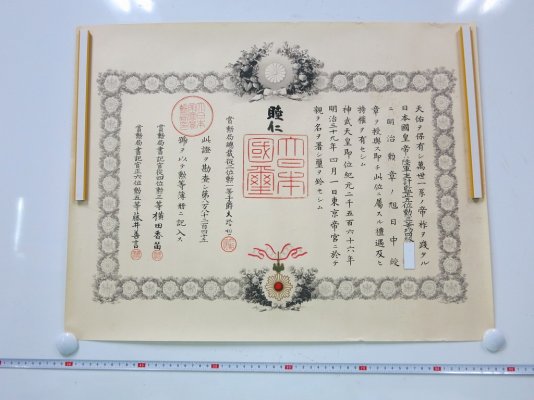 天佑ヲ保有シ萬世一系ノ帝祚ヲ踐タル
日本國皇帝ハ陸軍主計
ニ明治勲章ノ旭日中綬
章ヲ授與ス即チ此位ニ屬スル禮遇及ヒ
特權ヲ有セシム
神武天皇即位紀元二千五百六十六年
明治三十九年四月一日東京帝宮ニ於テ
親ラ名ヲ署シ璽ヲ鈐セシム
睦仁
大日本國璽
賞勲局總裁從二位勲一等子爵大給恒
此證ヲ勘査シ第
號ヲ以テ勲等簿冊ニ記入ス
賞勲局書記官從四位勲三等横田香苗
賞勲局書記官正六位勲五等藤井善言